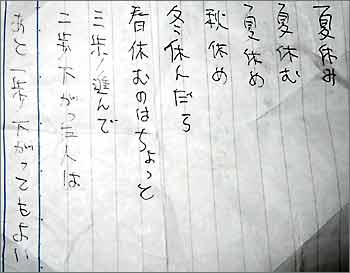 夏休み
夏休む
夏休め
秋休め
冬休んだら
春休むのはちょっと
三歩進んで
二歩下がった人は
あと一歩下がってもよい